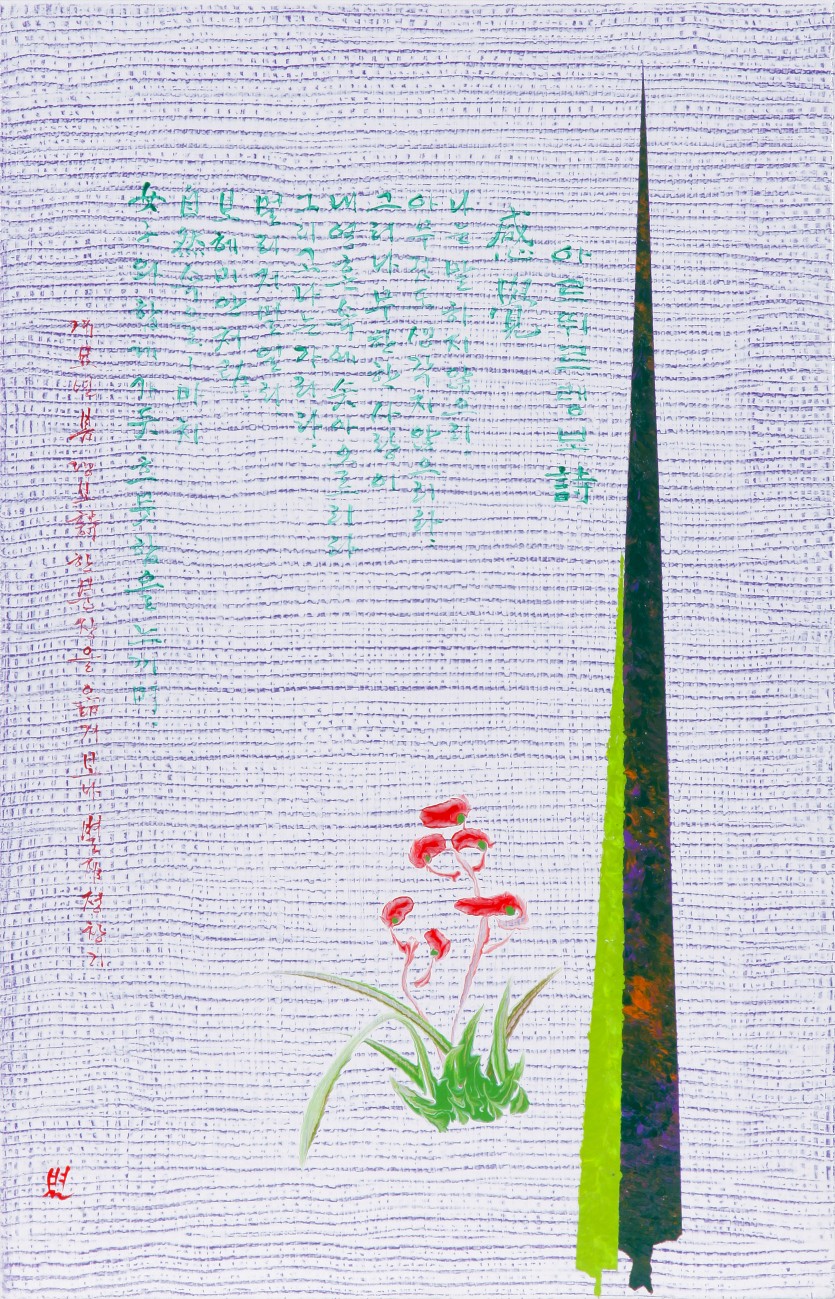 아르뛰르 랭보 詩
感覺
나는 말하지 않으리.
아무것도 생각지 않으리라.
그러나 무한한 사랑이
내 영혼속에 솟아 오르리라
그리고 나는 가리라.
멀리 저 멀리
보헤미안처럼.
自然속을, 마치
女人과 함께 가듯 흐뭇함을 느끼며.
랭보 詩 한 을 옮겨 보다
별